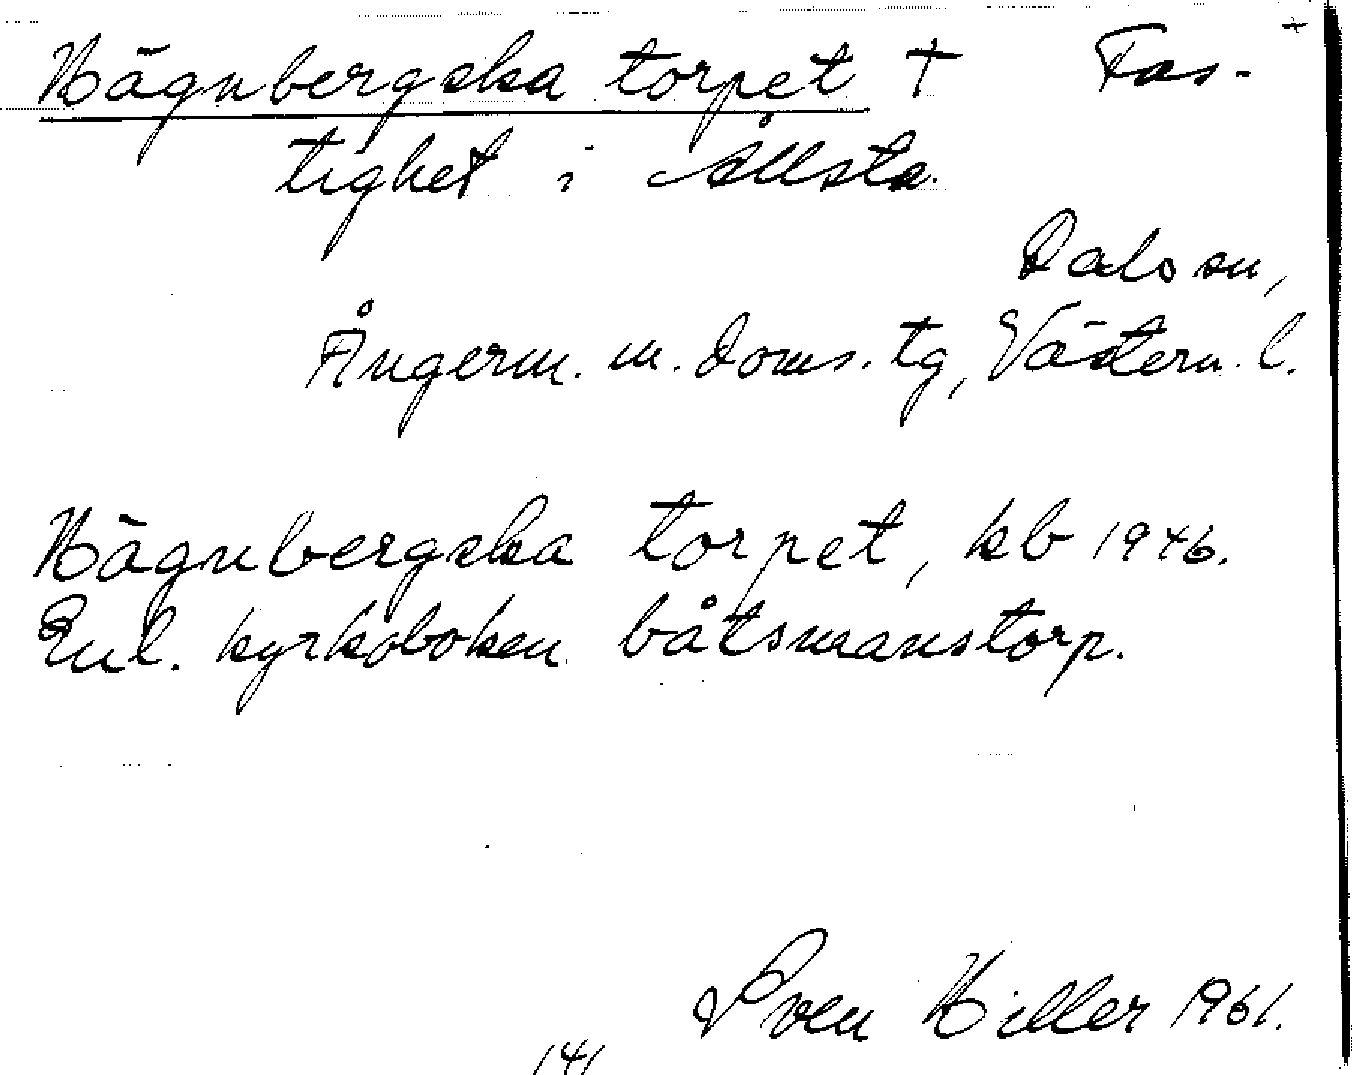 Hägnbergska torpet † Fas- +
tighet i Ållsta.
Dals sn,
Ångerm. m. doms. tg, Västern. l.
Hägnbergska torpet, kb 1946.
Enl. kyrkoboken båtsmanstorp.
Sven Hiller 1961.
141